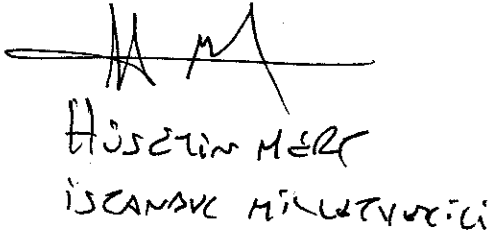 Hüseyin MERT
İSTANBUL MİLLETVEKİLİ